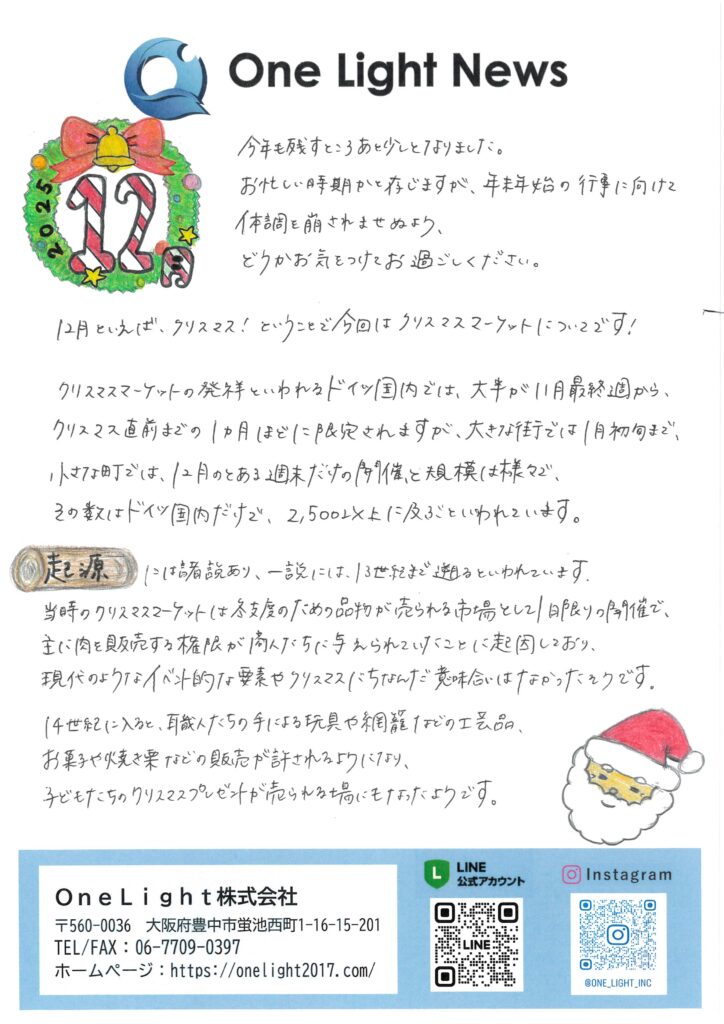 One Light News
2025
12月
今年も残すところあと少しとなりました。
お忙しい時期かと存じますが、年末年始の行事に向けて
体調を崩されませぬよう、
どうかお気をつけてお過ごしください。
12月といえば、クリスマス！ということで今回はクリスマスマーケットについてです！
クリスマスマーケットの発祥といわれるドイツ国内では、大半が11月最終週から、
クリスマス直前までの1カ月ほどに限定されますが、大きな街では1月初旬まで、
小さな町では、12月のとある週末だけの開催、と規模は様々で、
その数はドイツ国内だけで、2,500以上に及ぶといわれています。
起源 には諸説あり、一説には、13世紀まで遡るといわれています。
当時のクリスマスマーケットは冬支度のための品物が売られる市場として1日限りの開催で、
主に肉を販売する権限が商人たちに与えられていたことに起因しており、
現代のようなイベント的な要素やクリスマスにちなんだ意味合いはなかったそうです。
14世紀に入ると、職人たちの手による玩具や網籠などの工芸品、
お菓子や焼き栗などの販売が許されるようになり、
子どもたちのクリスマスプレゼントが売られる場にもなったようです。
OneLight株式会社
〒560-0036 大阪府豊中市蛍池西町1-16-15-201
TEL/FAX：06-7709-0397
ホームページ：https://onelight2017.com/
LINE
公式アカウント
LINE
Instagram
@ONE_LIGHT_INC